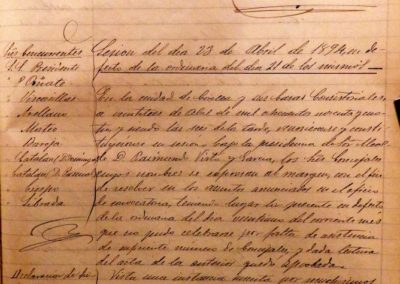 Sres Concurrentes
Sr. Presidente
" Oñate
Viscasillas
Arellano
Mateo
Baroja
Catalan D. Domingo
Catalan D. Manuel
Crespo
Librada
Sesion del dia 23 de Abril de 1894 en de-
fecto de la ordinaria del dia 21 de los mismos
En la ciudad de y sus Casas Consistoriales
a veintitres de Abril de mil ochocientos noventa y cua-
tro y siendo las seis de la tarde, reunieronse y consti-
tuyeronse en sesion bajo la presidencia de los Alcal-
de D. Raimundo y Garcia, los Sres Concejales
cuyos nombres se expresan al margen, con el fin
de resolver en los asuntos anunciados en el oficio
de convocatoria, teniendo lugar la presente en defecto
de la ordinaria del dia veintiuno del corriente mes
que no pudo celebrarse por falta de asistencia
de suficiente número de Concejales, y dada lectura
del acta de la anterior quedó aprobada.
Declaracion de
Vista una instancia suscrita por